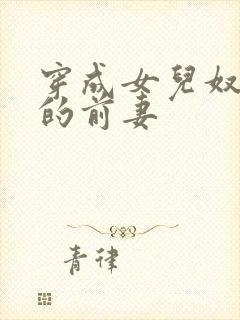 穿成女兒奴
的前妻
青律